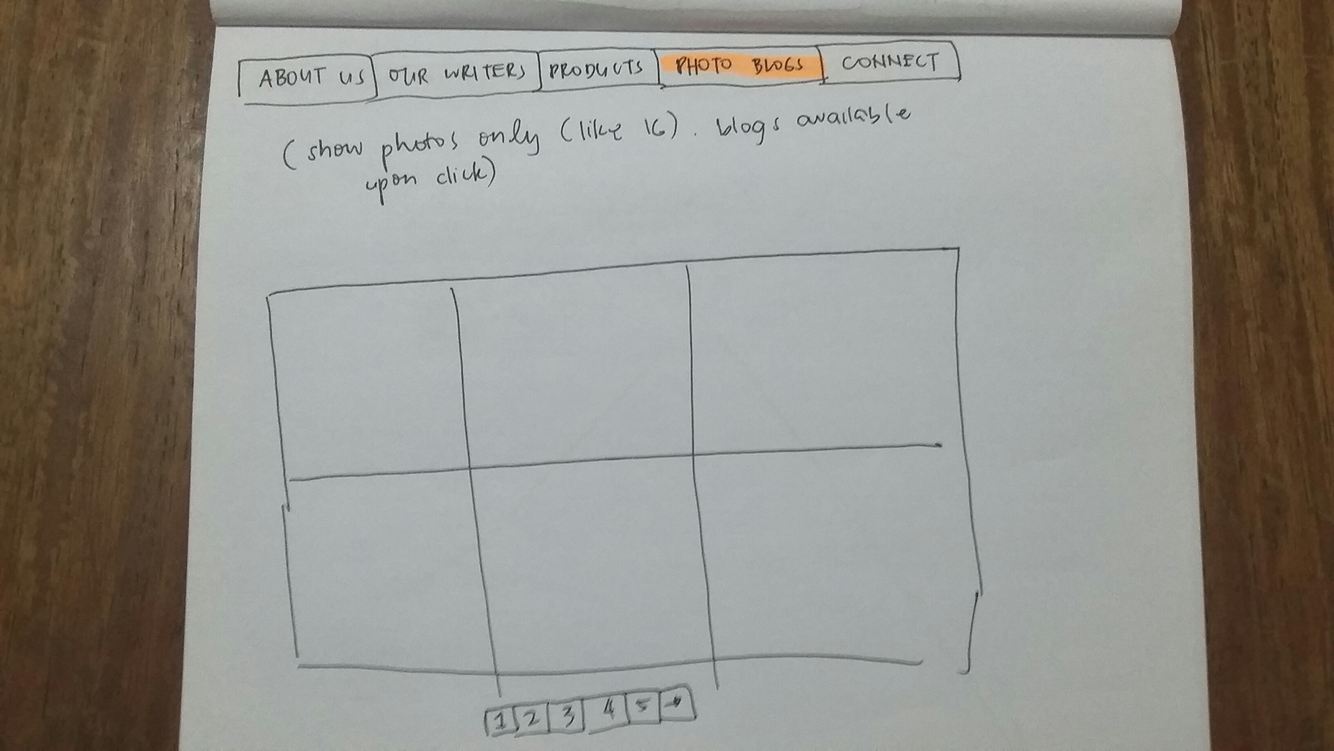 ABOUT US OUR WRITERS PRODUCTS PHOTO BLOGS CONNECT
(show photos only (like IG). blogs available
upon click)
1 2 3 4 5 →